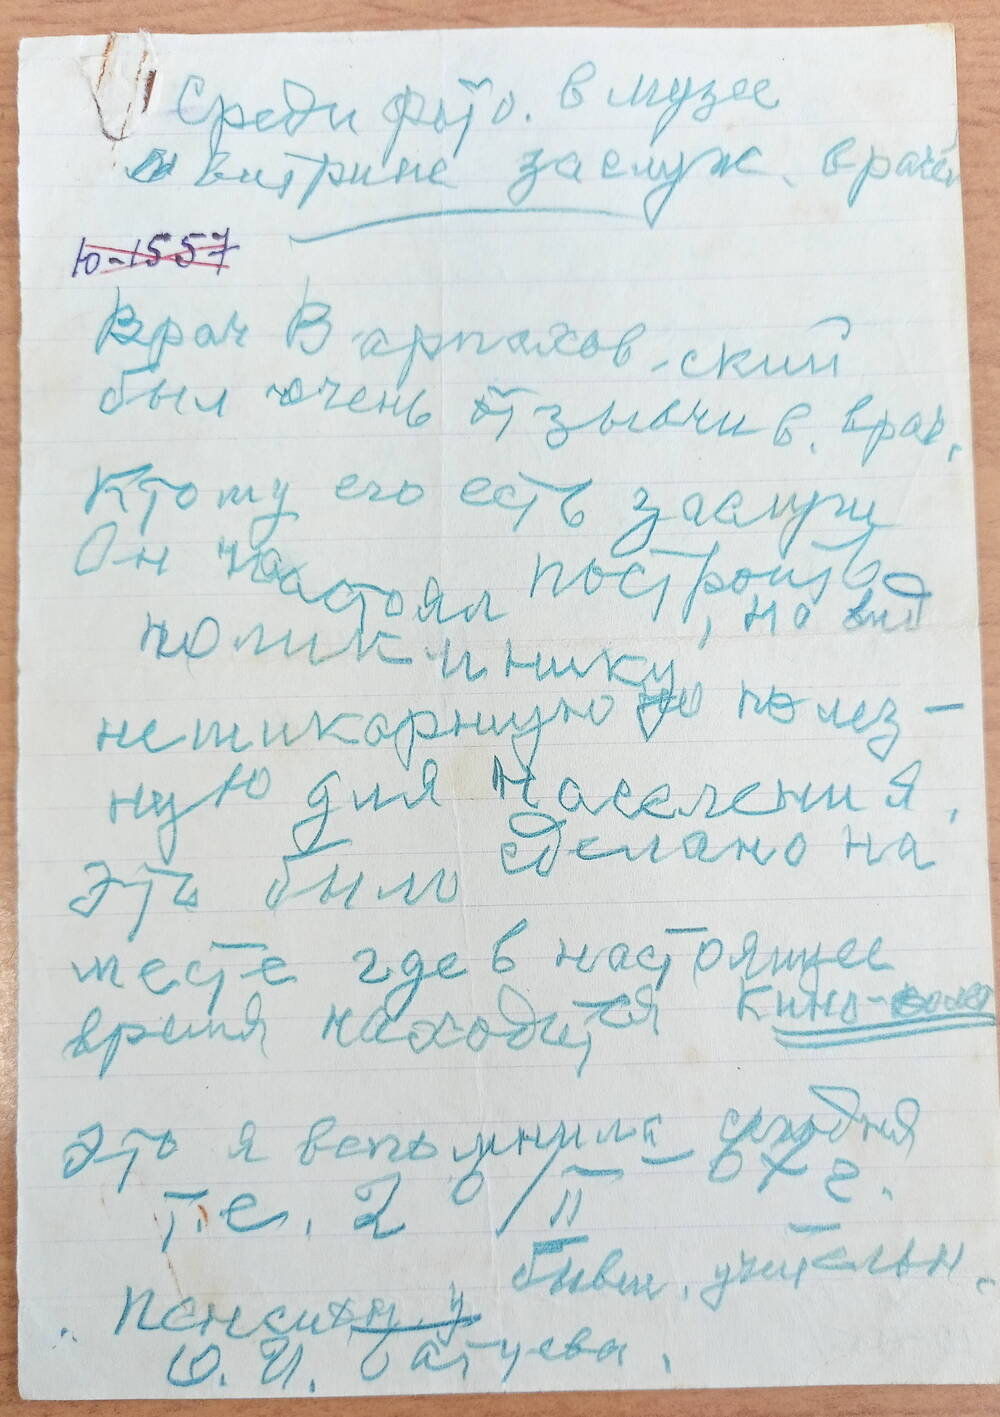 Среди фото. в музее
в витрине заслуж. врачей
Ю-1557
Врач Варпаховский
был очень отзывчив. врач.
К тому его есть заслуги
Он настоял построить
поликлинику, на вид
нешикарную но полез-
ную для населения.
Это было сделано на
месте где в настоящее
время находится Кино-
Это я вспомнила сегодня
т.е. 20/II - г.
бывш. учительн.
Пенсион.
О. И.